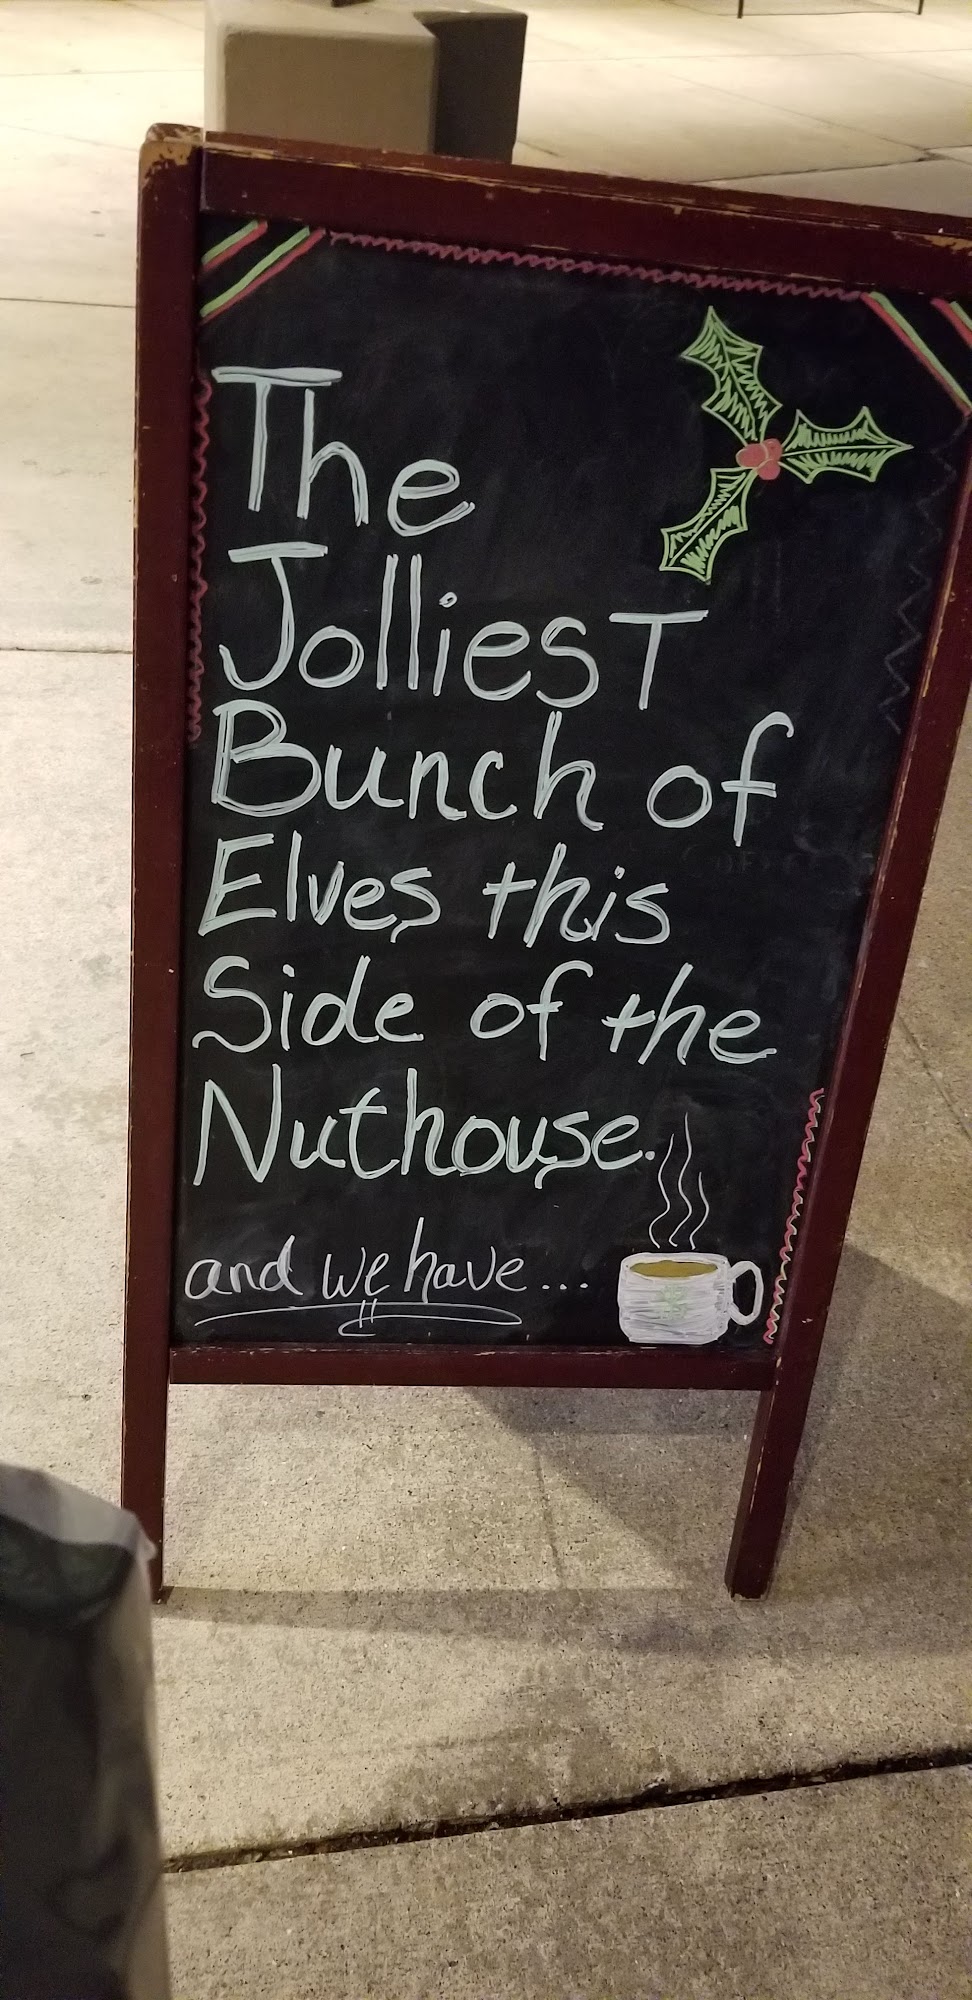 The
JolliesT
Bunch of
Elves this
Side of the
Nuthouse.
and we have...